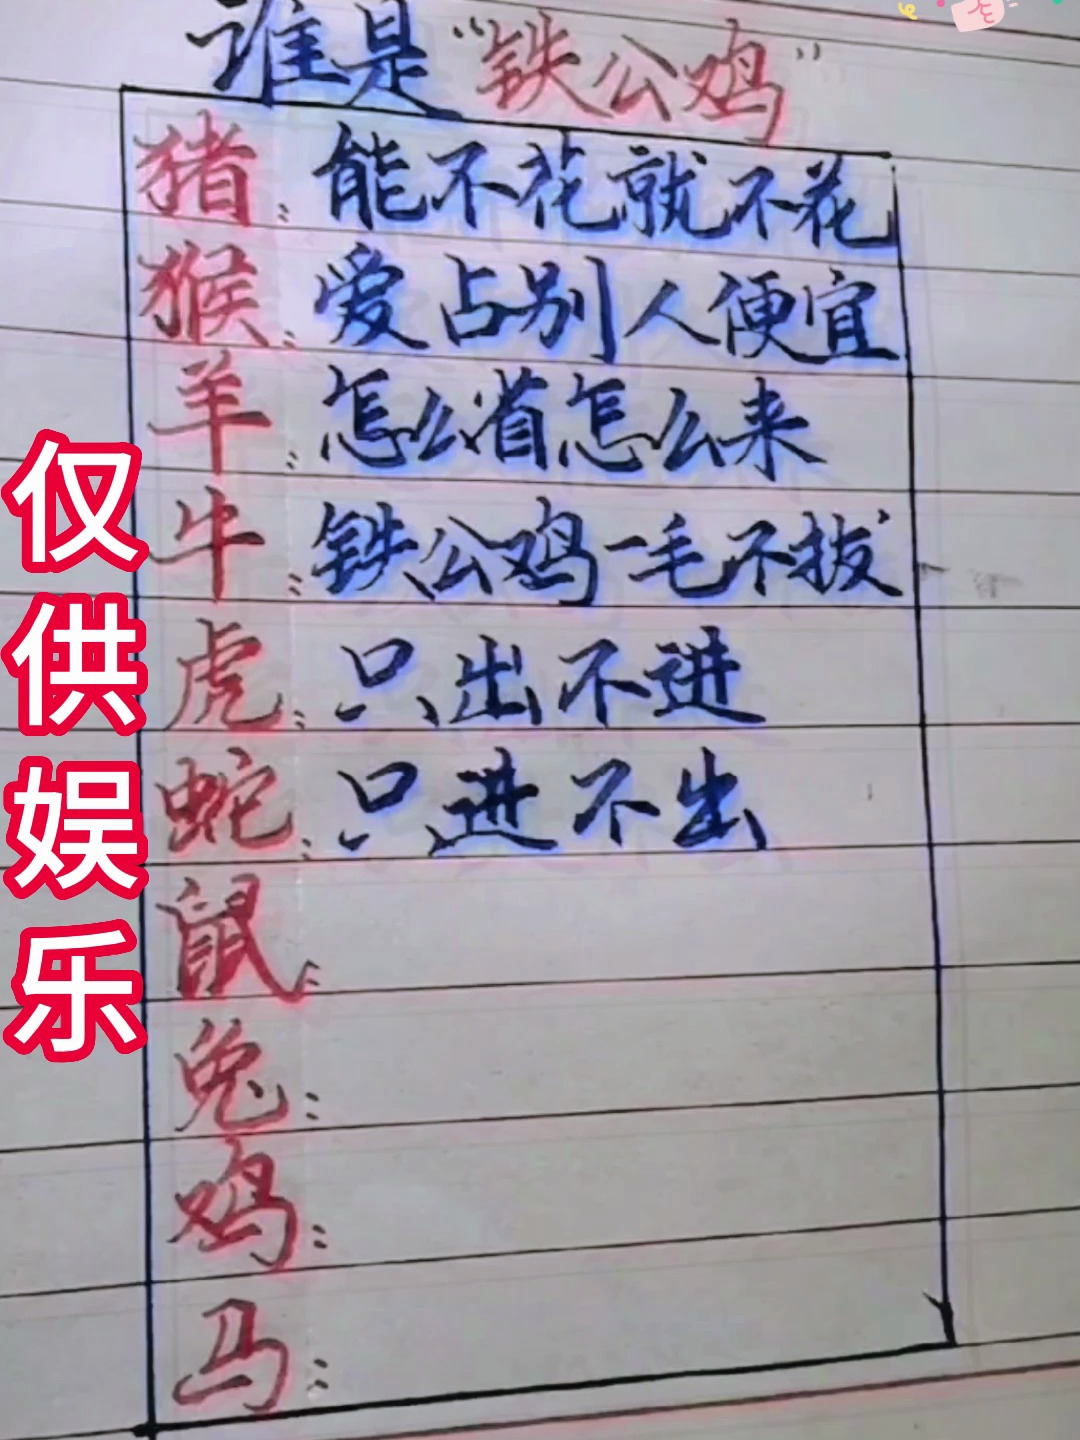 谁是“铁公鸡”
猪：能不花就不花
猴：爱占别人便宜
羊：怎么省怎么来
牛：铁公鸡一毛不拔
虎：只出不进
蛇：只进不出
鼠：
兔：
鸡：
马：
仅供娱乐